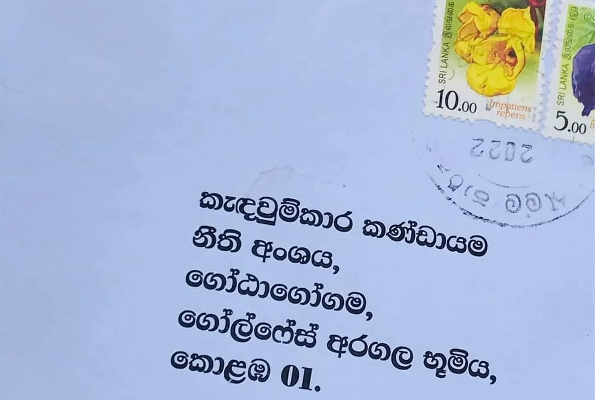 SRI LANKA ශ්‍රී ලංකා
10.00
Impatiens
repens
SRI LANKA ශ්‍රී ලංකා
5.00
2022
කැඳවුම්කාර කණ්ඩායම
නීති අංශය,
ගෝඨාගෝගම,
ගෝල්ෆේස් අරගල භූමිය,
කොළඹ 01.